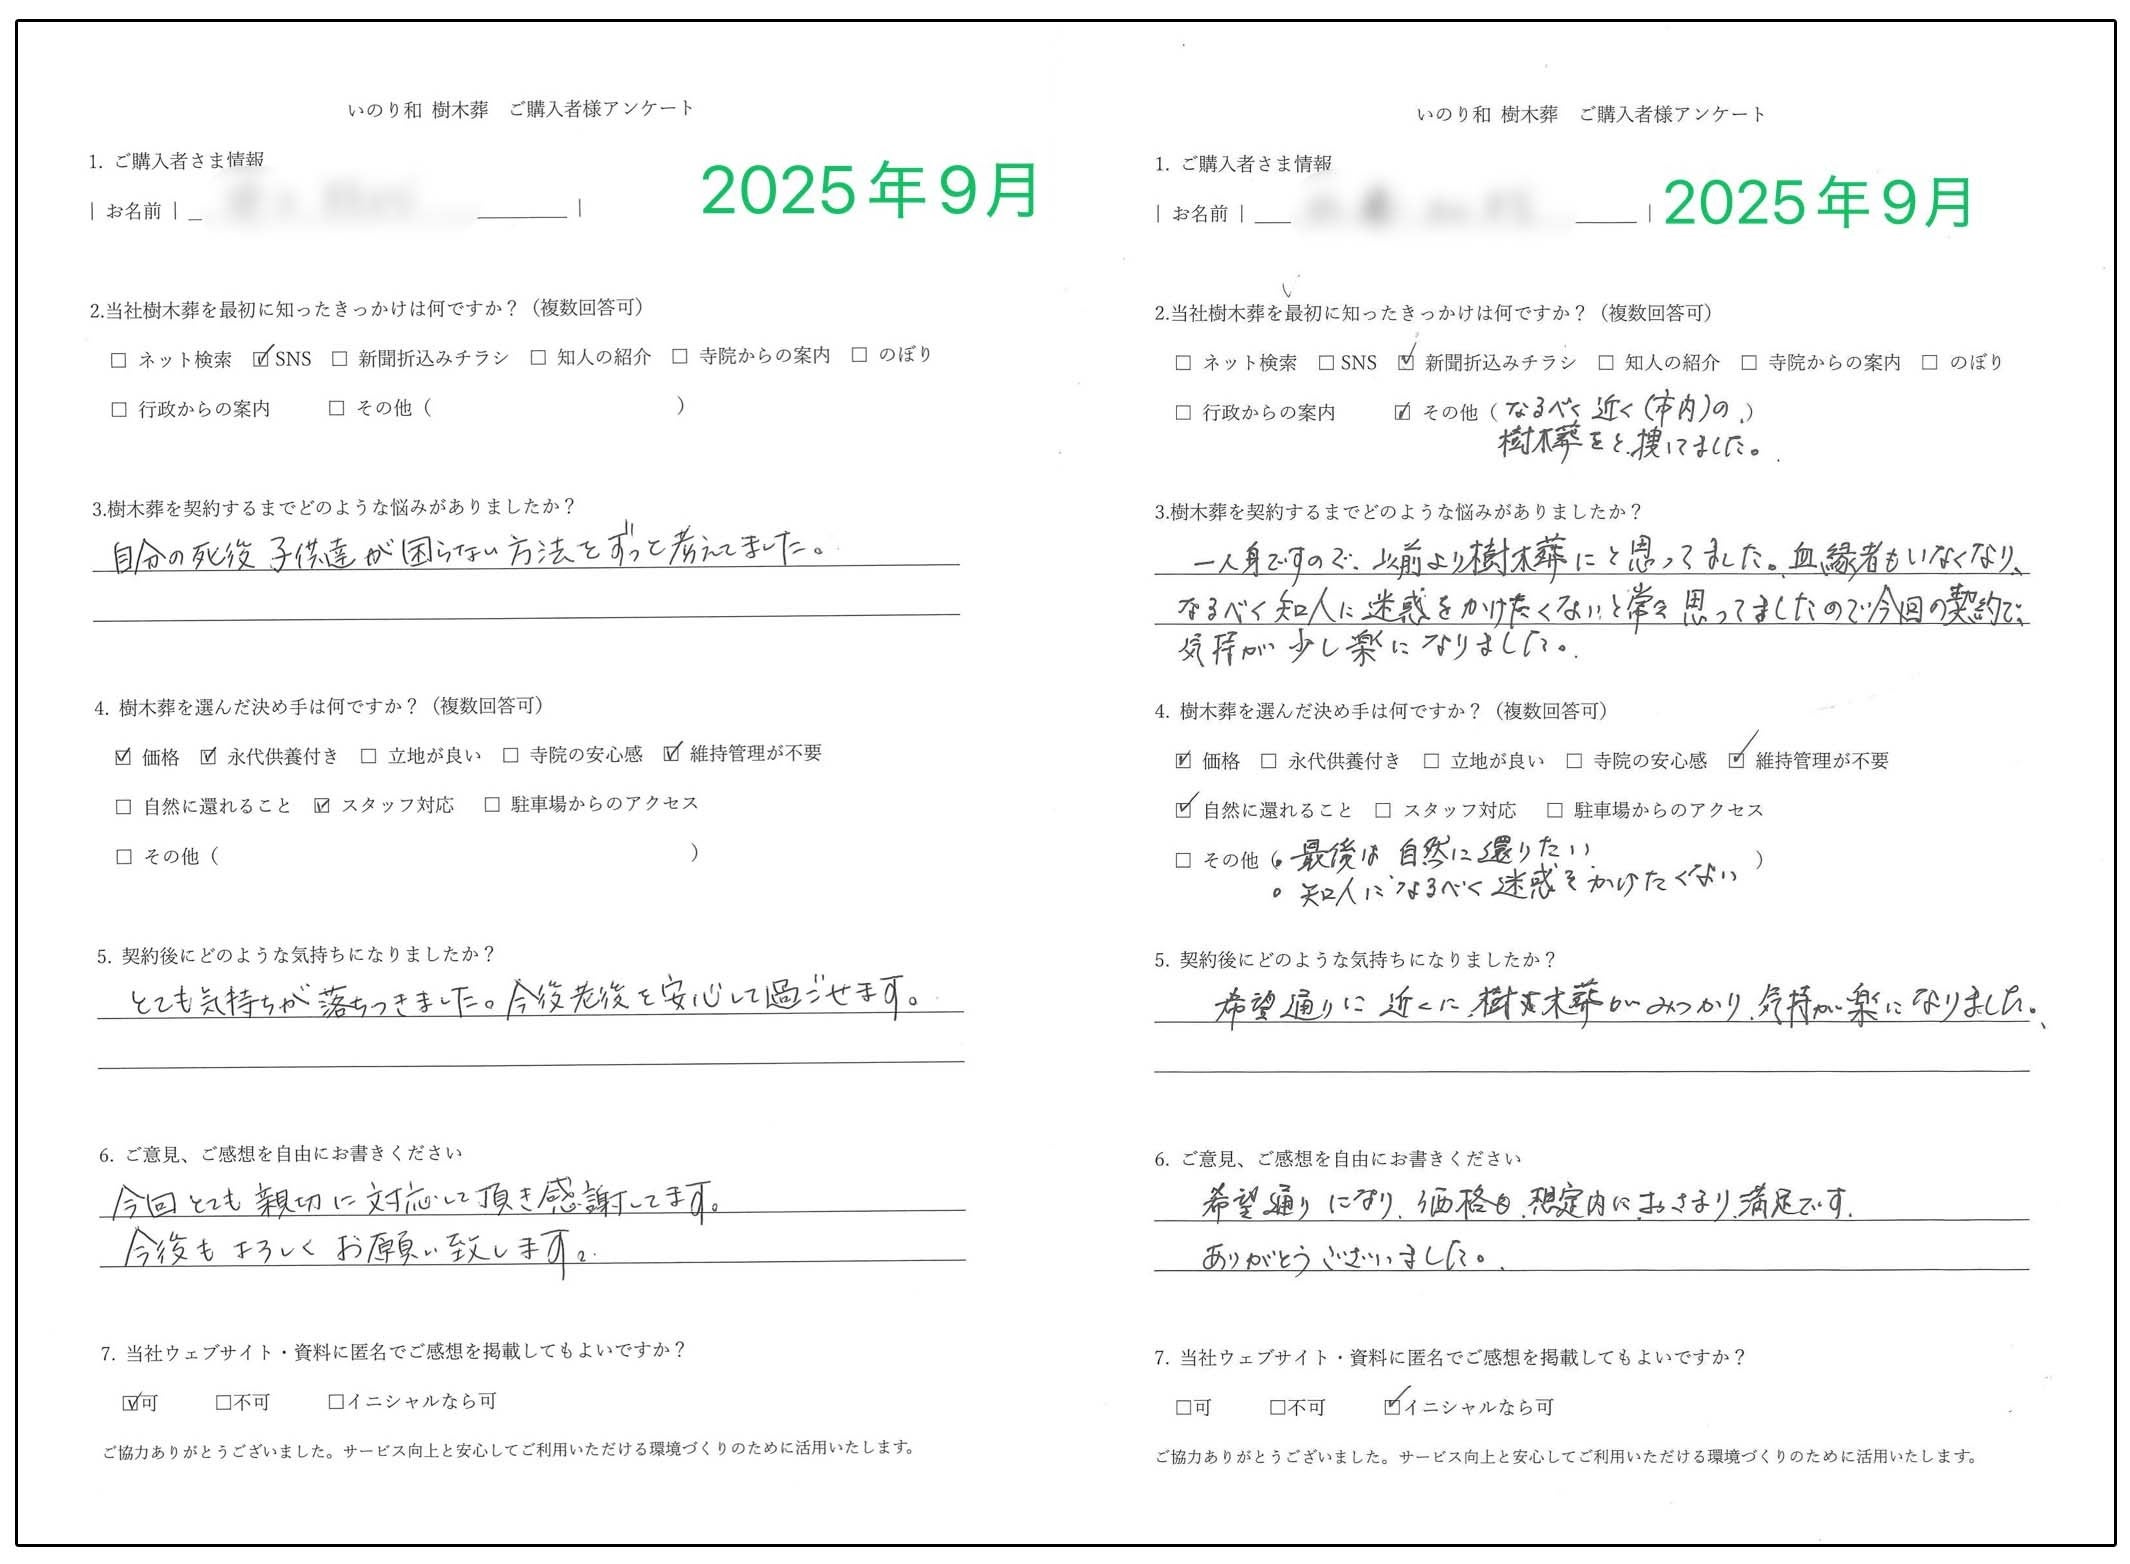 いのり和 樹木葬　ご購入者様アンケート
1. ご購入者さま情報
2025年9月
| お名前 | _ ______ |
2.当社樹木葬を最初に知ったきっかけは何ですか？（複数回答可）
☐ ネット検索 ☑ SNS ☐ 新聞折込みチラシ ☐ 知人の紹介 ☐ 寺院からの案内 ☐ のぼり
☐ 行政からの案内 ☐ その他（ ）
3.樹木葬を契約するまでどのような悩みがありましたか？
自分の死後 子供達が困らない方法をずっと考えてました。
4. 樹木葬を選んだ決め手は何ですか？（複数回答可）
☑ 価格 ☑ 永代供養付き ☐ 立地が良い ☐ 寺院の安心感 ☑ 維持管理が不要
☐ 自然に還れること ☑ スタッフ対応 ☐ 駐車場からのアクセス
☐ その他（ ）
5. 契約後にどのような気持ちになりましたか？
とても気持ちが落ちつきました。今後老後を安心して過ごせます。
6. ご意見、ご感想を自由にお書きください
今回とても親切に対応して頂き感謝してます。
今後もよろしくお願い致します。
7. 当社ウェブサイト・資料に匿名でご感想を掲載してもよいですか？
☑可 ☐不可 ☐イニシャルなら可
ご協力ありがとうございました。サービス向上と安心してご利用いただける環境づくりのために活用いたします。
いのり和 樹木葬　ご購入者様アンケート
1. ご購入者さま情報
| お名前 | __ ____ |
2025年9月
2.当社樹木葬を最初に知ったきっかけは何ですか？（複数回答可）
☐ ネット検索 ☐ SNS ☑ 新聞折込みチラシ ☐ 知人の紹介 ☐ 寺院からの案内 ☐ のぼり
☐ 行政からの案内 ☑ その他（なるべく近く(市内)の、）
樹木葬をと、捜してました。
3.樹木葬を契約するまでどのような悩みがありましたか？
一人身ですので、以前より樹木葬にと思ってました。血縁者もいなくなり、
なるべく知人に迷惑をかけたくないと常々思ってましたので今回の契約で、
気持が少し楽になりました。
4. 樹木葬を選んだ決め手は何ですか？（複数回答可）
☑ 価格 ☐ 永代供養付き ☐ 立地が良い ☐ 寺院の安心感 ☑ 維持管理が不要
☑ 自然に還れること ☐ スタッフ対応 ☐ 駐車場からのアクセス
☐ その他（。最後は自然に還りたい ）
。知人になるべく迷惑をかけたくない
5. 契約後にどのような気持ちになりましたか？
希望通りに近くに、樹木葬がみつかり、気持が楽になりました。
6. ご意見、ご感想を自由にお書きください
希望通りになり、価格も、想定内におさまり、満足です。
ありがとうございました。
7. 当社ウェブサイト・資料に匿名でご感想を掲載してもよいですか？
☐可 ☐不可 ☑イニシャルなら可
ご協力ありがとうございました。サービス向上と安心してご利用いただける環境づくりのために活用いたします。